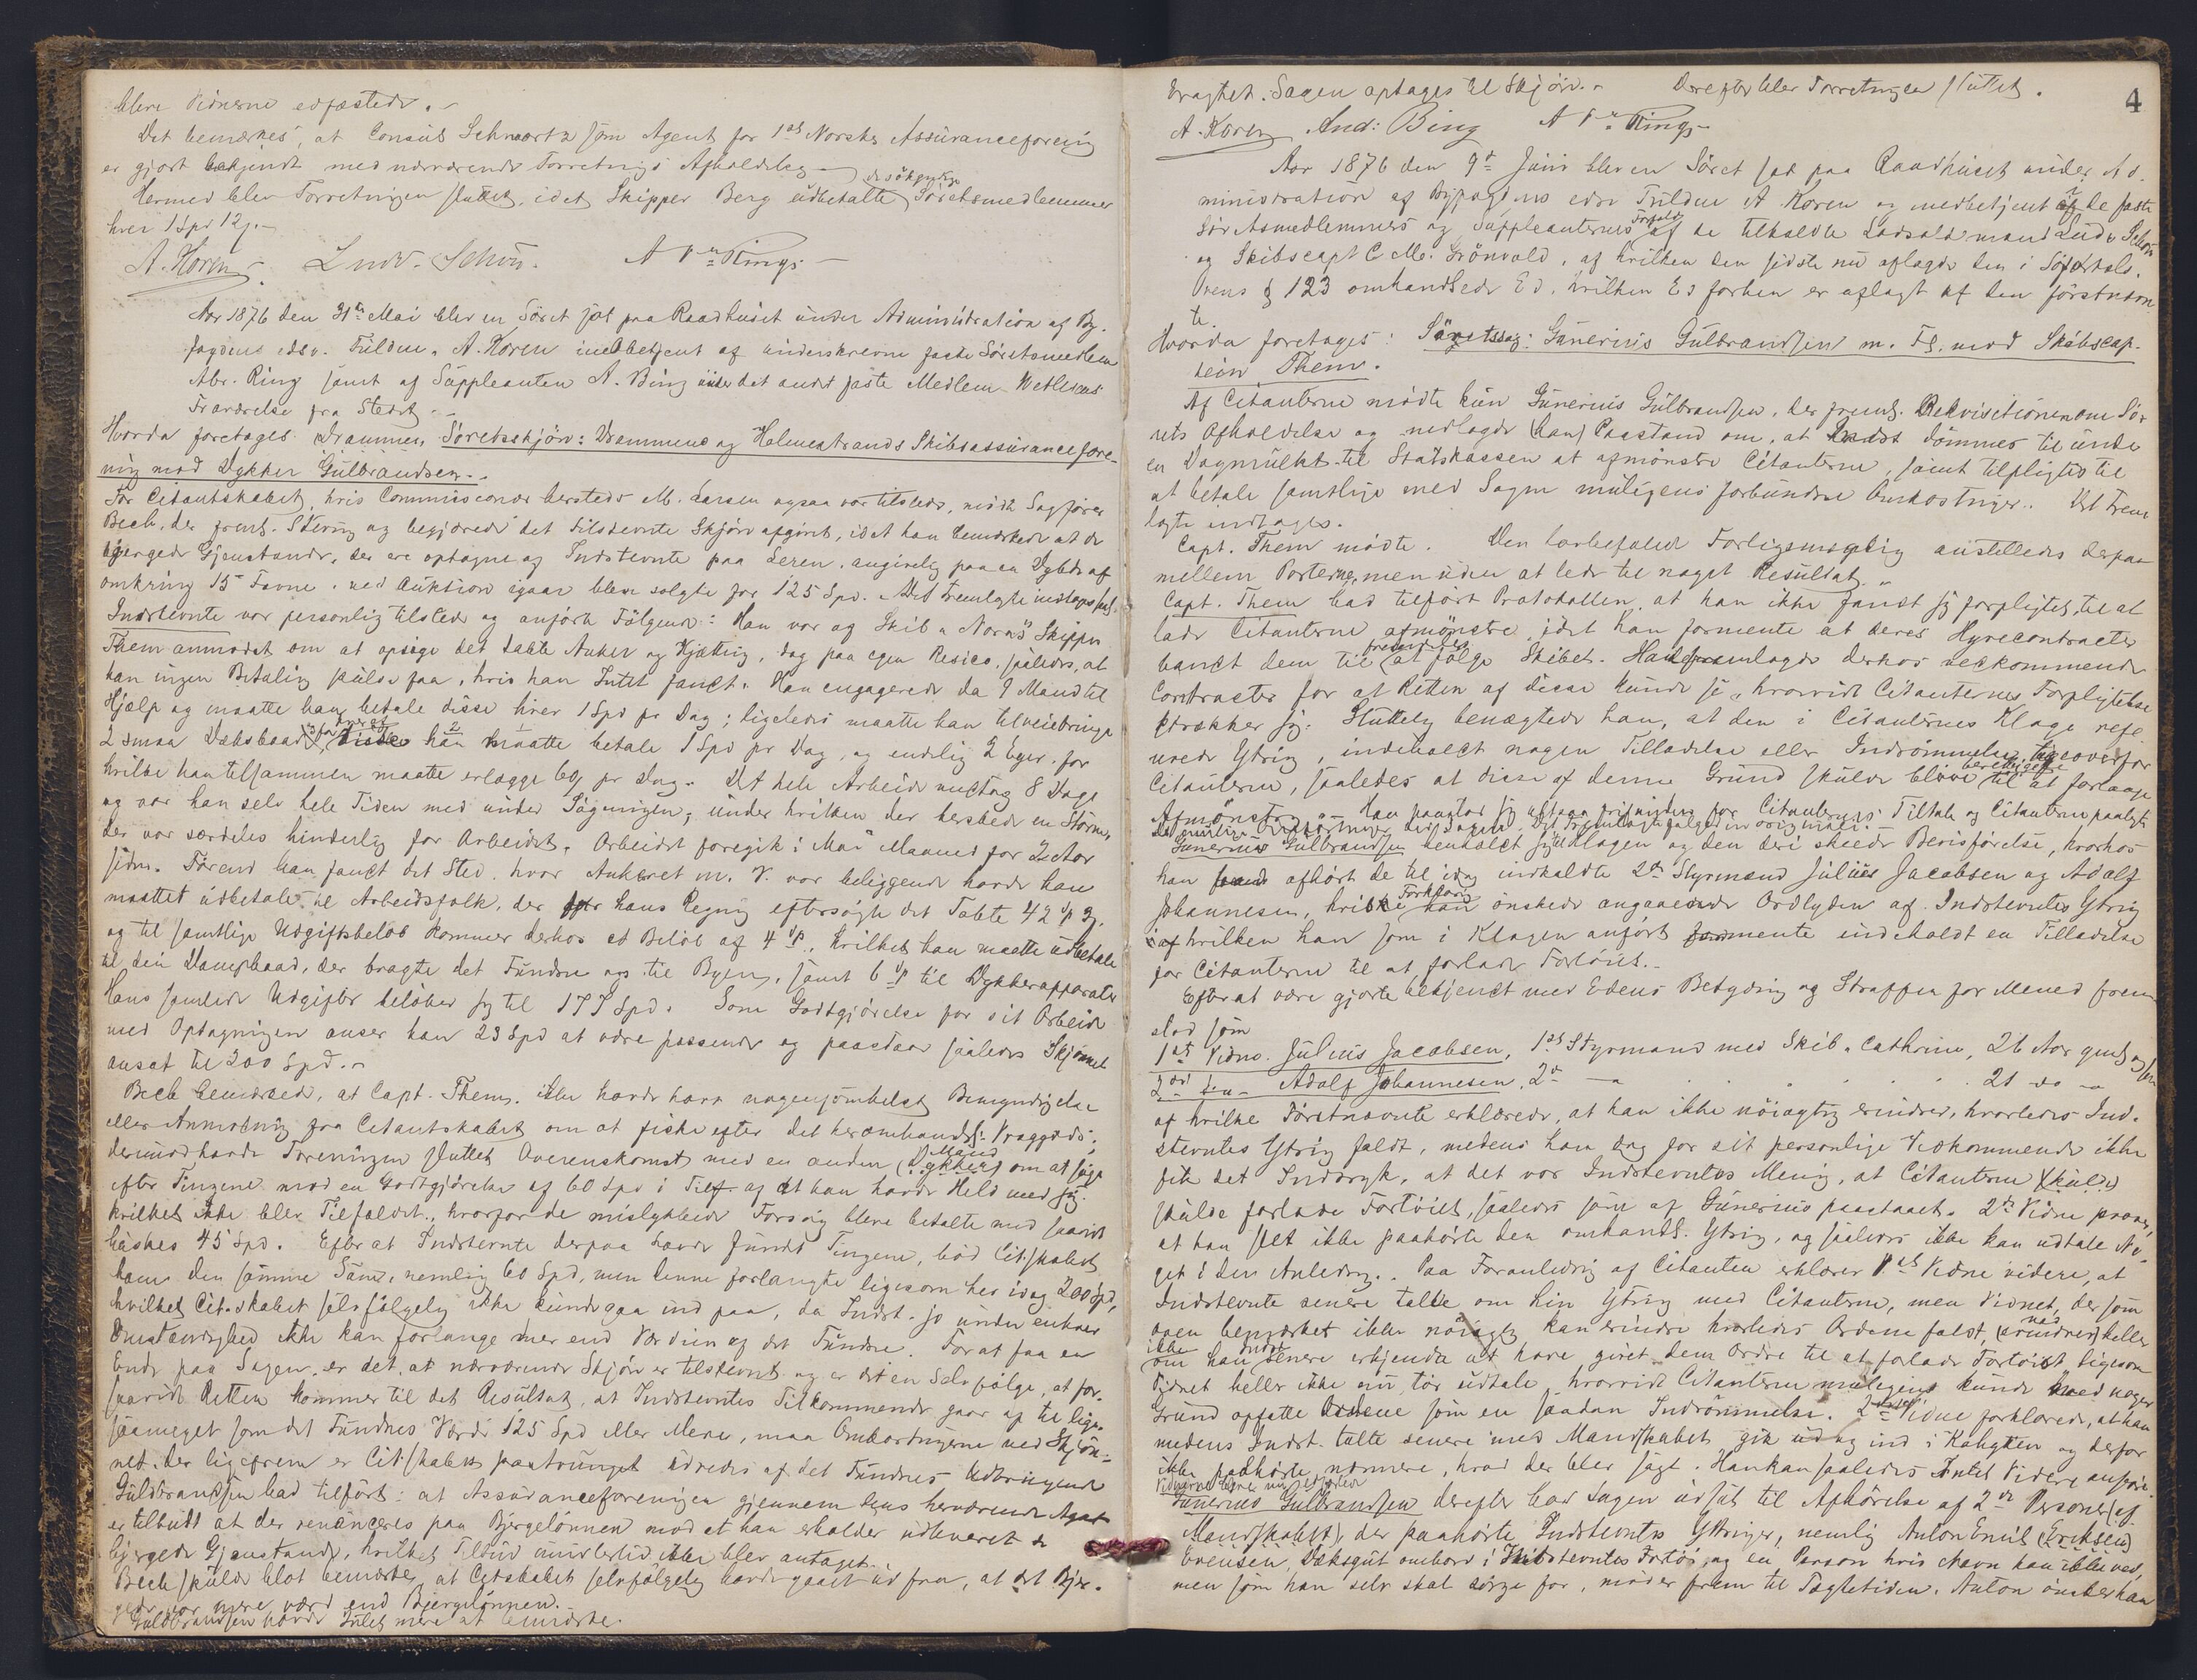 blive Vidnerne edfæstede.
Det bemærkes, at Consul Schwartz som Agent for 1ste Norske Assuranceforening
er gjort bekjendt med nærværende Forretnings Afholdelse
Hermed blev Forretningen sluttet, idet Skipper Berg udbetalte Søretsmedlemmer
hver 1 Spd 12
A. Koren Ludv. Schøn. A Ring
Aar 1876 den 31te Mai blev en Søret sat paa Raadhuset under Administration af By-
fogdens edsv. Fuldm. A. Koren medbetjent af underskrevne faste Søretsmedlem
Abr. Ring samt af Suppleanten A. Bing under det andet faste Medlem
Fraværelse fra Stedet.
Hvorda foretages Drammen Søretsskjøn: Drammens og Holmestrands Skibsassurancefore-
ning mod Dykker Gulbrandsen.
For Citantskabet, hvis Commissionær hersteds M. Larsen ogsaa var tilstede, mødte Sagfører
Bech, der freml. Stevning og begjærede det tilstevnte Skjøn afgivet, idet han bemærkede at de
bjergede Gjenstande, der ere optagne og Indstevnte paa Leren, angivelig paa en Dybde af
omkring 15 Favne, ved Auktion igaar bleve solgte for 125 Spd. Det Fremlagte indtages
Indstevnte var personlig tilstede og anførte Følgende: Han var af Skib "Norna's" Skipper
Them anmodet om at opsøge det tabte Anker og Kjætting, dog paa egen Resico, saaledes, at
han ingen Betaling skulde faa, hvis han Intet fandt. Han engagerede da 9 Mand til
Hjælp og maatte han betale disse hver 1 Spd pr Dag; ligeledes maatte han tilveiebringe
2 smaa Dæksbaade for hver af disse han maatte betale 1 Spd pr Dag, og endelig 2 Eger, for
hvilke han tilsammen maatte erlægge 60 pr Dag. Det hele Arbeide medtog 8 Dage
og var han selv hele Tiden med under Søgningen, under hvilken der herskede en Storm,
der var særdeles hinderlig for Arbeidet. Arbeidet foregik i Mai Maaned for 2 Aar
siden. Førend han fandt det Sted, hvor Ankeret m. V. var beliggende havde han
maattet udbetale til Arbeidsfolk, der for hans Regning eftersøgte det Tabte 42
og til samtlige Udgiftsbeløb kommer derhos et Beløb af 4, hvilket han maatte udbetale
til den Dampbaad, der bragte det Fundne op til Byen, samt 6 til Dykkerapparater
Hans samlede Udgifter beløber sig til 177 Spd. Som Godtgjørelse for sit Arbeide
med Optagningen anser han 23 Spd at være passende og paastaar saaledes Skjønnet
ansat til 200 Spd.
Bech bemærked, at Capt. Them ikke havde havt nogensomhelst Bemyndigelse
eller Anmodning fra Citantskabet om at fiske efter det heromhandl. Vraggods;
derimod havde Foreningen sluttet Overenskomst med en anden Mand (Dykker) om at søge
efter Tingene mod en Godtgjørelse af 60 Spd i Tilf. af at han havde Held med sig.
hvilket ikke blev Tilfældet, hvorfor de mislykkede Forsøg bleve betalte med saavidt
huskes 45 Spd. Efter at Indstevnte derpaa havde fundet Tingene, bød Citskabet
ham den samme Sum, nemlig 60 Spd, men denne forlangte ligesom her idag 200 Spd,
hvilket Cit.skabet selvfølgelig ikke kunde gaa ind paa, da Indst. jo under enhver
Omstændighed ikke kan forlange mer end Værdien af det Fundne. For at faa en
Ende paa Sagen, er det, at nærværende Skjøn er tilstevnt og er det en Selvfølge, at for-
saavidt Retten kommer til det Resultat, at Indstevntes Tilkommende gaar op til lige-
saameget som det Fundnes Værdi 125 Spd eller Mere, maa Omkostningerne ved Skjøn-
net, der ligefrem er Cit.skabet paatvunget udredes af det Fundnes Udbringende
Guldbrandsen bad tilført: at Assuranceforeningen gjennem dens herværende Agent
er tilbudt at der renonceres paa Bjergelønnen mod at han erholder udleveret de
bjergede Gjenstande, hvilket Tilbud imidlertid ikke blev antaget.
Bech skulde blot bemærke, at Citskabet selvfølgelig havde gaaet ud fra, at det Bjer-
gede var mere værd end Bjergelønnen.
Guldbrandsen havde Intet mere at bemærke.
4
bragtet. Sagen optages til Skjøn. Derefter blev Forretningen sluttet.
A. Koren And: Bing A Ring
Aar 1876 den 9de Juni blev en Søret sat paa Raadhuset under Ad-
ministration af Byfogdens edsv Fuldm A Koren og medbetjent af de faste
Søretsmedlemmers og Suppleanternes Forfald af de tilkaldte Ludv Schøn
og Skibscapt C M. Grönvold, af hvilken den sidste nu aflagde den i Søfartslo-
vens § 123 omhandlede Ed, hvilken Ed forhen er aflagt af den førstnævn-
te.
Hvorda foretages: Søretssag: Gunerius Gulbrandsen m. Fl. mod Skibscap-
tein Them.
Af Citanterne mødte kun Gunerius Gulbrandsen, der freml. Rekvisitionen om Sø-
rets Afholdelse og nedlagde (han) Paastand om, at Indst dømmes til under
en Dagmulkt til Statskassen at afmønstre Citanterne, samt tilpligtes til
at betale samtlige med Sagen muligens forbundne Omkostninger. Det Frem-
lagte indtages.
Capt. Them mødte. Den lovbefalede Forligsmægling anstilledes derpaa
mellem Parterne, men uden at lede til noget Resultat.
Capt. Them bad tilført Protokollen, at han ikke fandt sig forpligtet til at
lade Citanterne afmønstre, idet han formente at deres Hyrecontracter
bandt dem til fremdeles at følge Skibet. Han fremlagde derhos vedkommende
Contracter for at Retten af disse kunde se, hvorvidt Citanternes Forpligtelse
strækker sig. Sluttelig benægtede han, at den i Citanternes Klage refe-
rerede Ytring, indeholdt nogen Tilladelse eller Indrømmelse ligeoverfor
Citanterne, saaledes at disse af denne Grund skulde blive berettigede til at forlange
Afmønstring. Han paastod sig aldeles frifunden for Citanternes Tiltale og Citanterne paalagt
Gunerius Gulbrandsen henholdt sig til Klagen og den deri skeede Bevisførelse, hvorhos
han afhørt de til idag indkaldte 2de Styrmænd Julius Jacobsen og Adolf
Johannesen, hvis Forklaring han ønskede angaaende Ordlyden af Indstevntes Ytring
af hvilken han som i Klagen anført formente indeholdt en Tilladelse
for Citanterne til at forlade Fortøiet.
Efter at være gjorte bekjendt med Edens Betydning og Straffen for Mened frem-
stod som
1ste Vidne. Julius Jacobsen, 1ste Styrmand med Skib "Cathrine, 26 Aar gml og
2det do Adolf Johannesen, 2de 21 do
af hvilke Førstnævnte erklærede, at han ikke nøiagtig erindrer, hvorledes Ind-
stevntes Ytring faldt, medens han dog for sit personlige Vedkommende ikke
fik det Indtryk, at det var Indstevntes Mening, at Citanterne (skulde)
skulde forlade Fortøiet, saaledes som af Gunerius paastaaet. 2det Vidne
at han slet ikke paahørte den omhandl. Ytring, og saaledes ikke kan udtale No-
get i den Anledning. Paa Foranledning af Citanten erklærer 1ste Vidne videre, at
Indstevnte senere talte om hin Ytring med Citanterne, men Vidnet, der som
oven bemærket ikke nøiagtig kan erindre hvorledes Ordene faldt, (erindrer) heller
ikke om han senere erkjendte at have givet dem Ordre til at forlade Fortøiet, ligesom
Vidnet heller ikke nu tør udtale, hvorvidt Citanterne muligens kunde med nogen
Grund opfatte Ordene som en saadan Indrømmelse. 2det Vidne forklarede, at han
medens Indst. talte senere med Mandskabet gik ud og ind i Kahytten og derfor
ikke paahørte nærmere, hvad der blev sagt. Han kan saaledes Intet Videre anføre.
Vidnerne bleve nu edfæstede
Gunerius Gulbrandsen derefter bad Sagen udsat til Afhørelse af 2de Personer (af
Mandskabet), der paahørte Indstevntes Ytringer, nemlig Anton Emil (Eriksen)
Evensen, Dæksgut ombord i Indstevntes Fortøi og en Person hvis Navn han ikke ved,
men som han selv skal sørge for, møder frem til Tægtetiden. Anton ønsker han